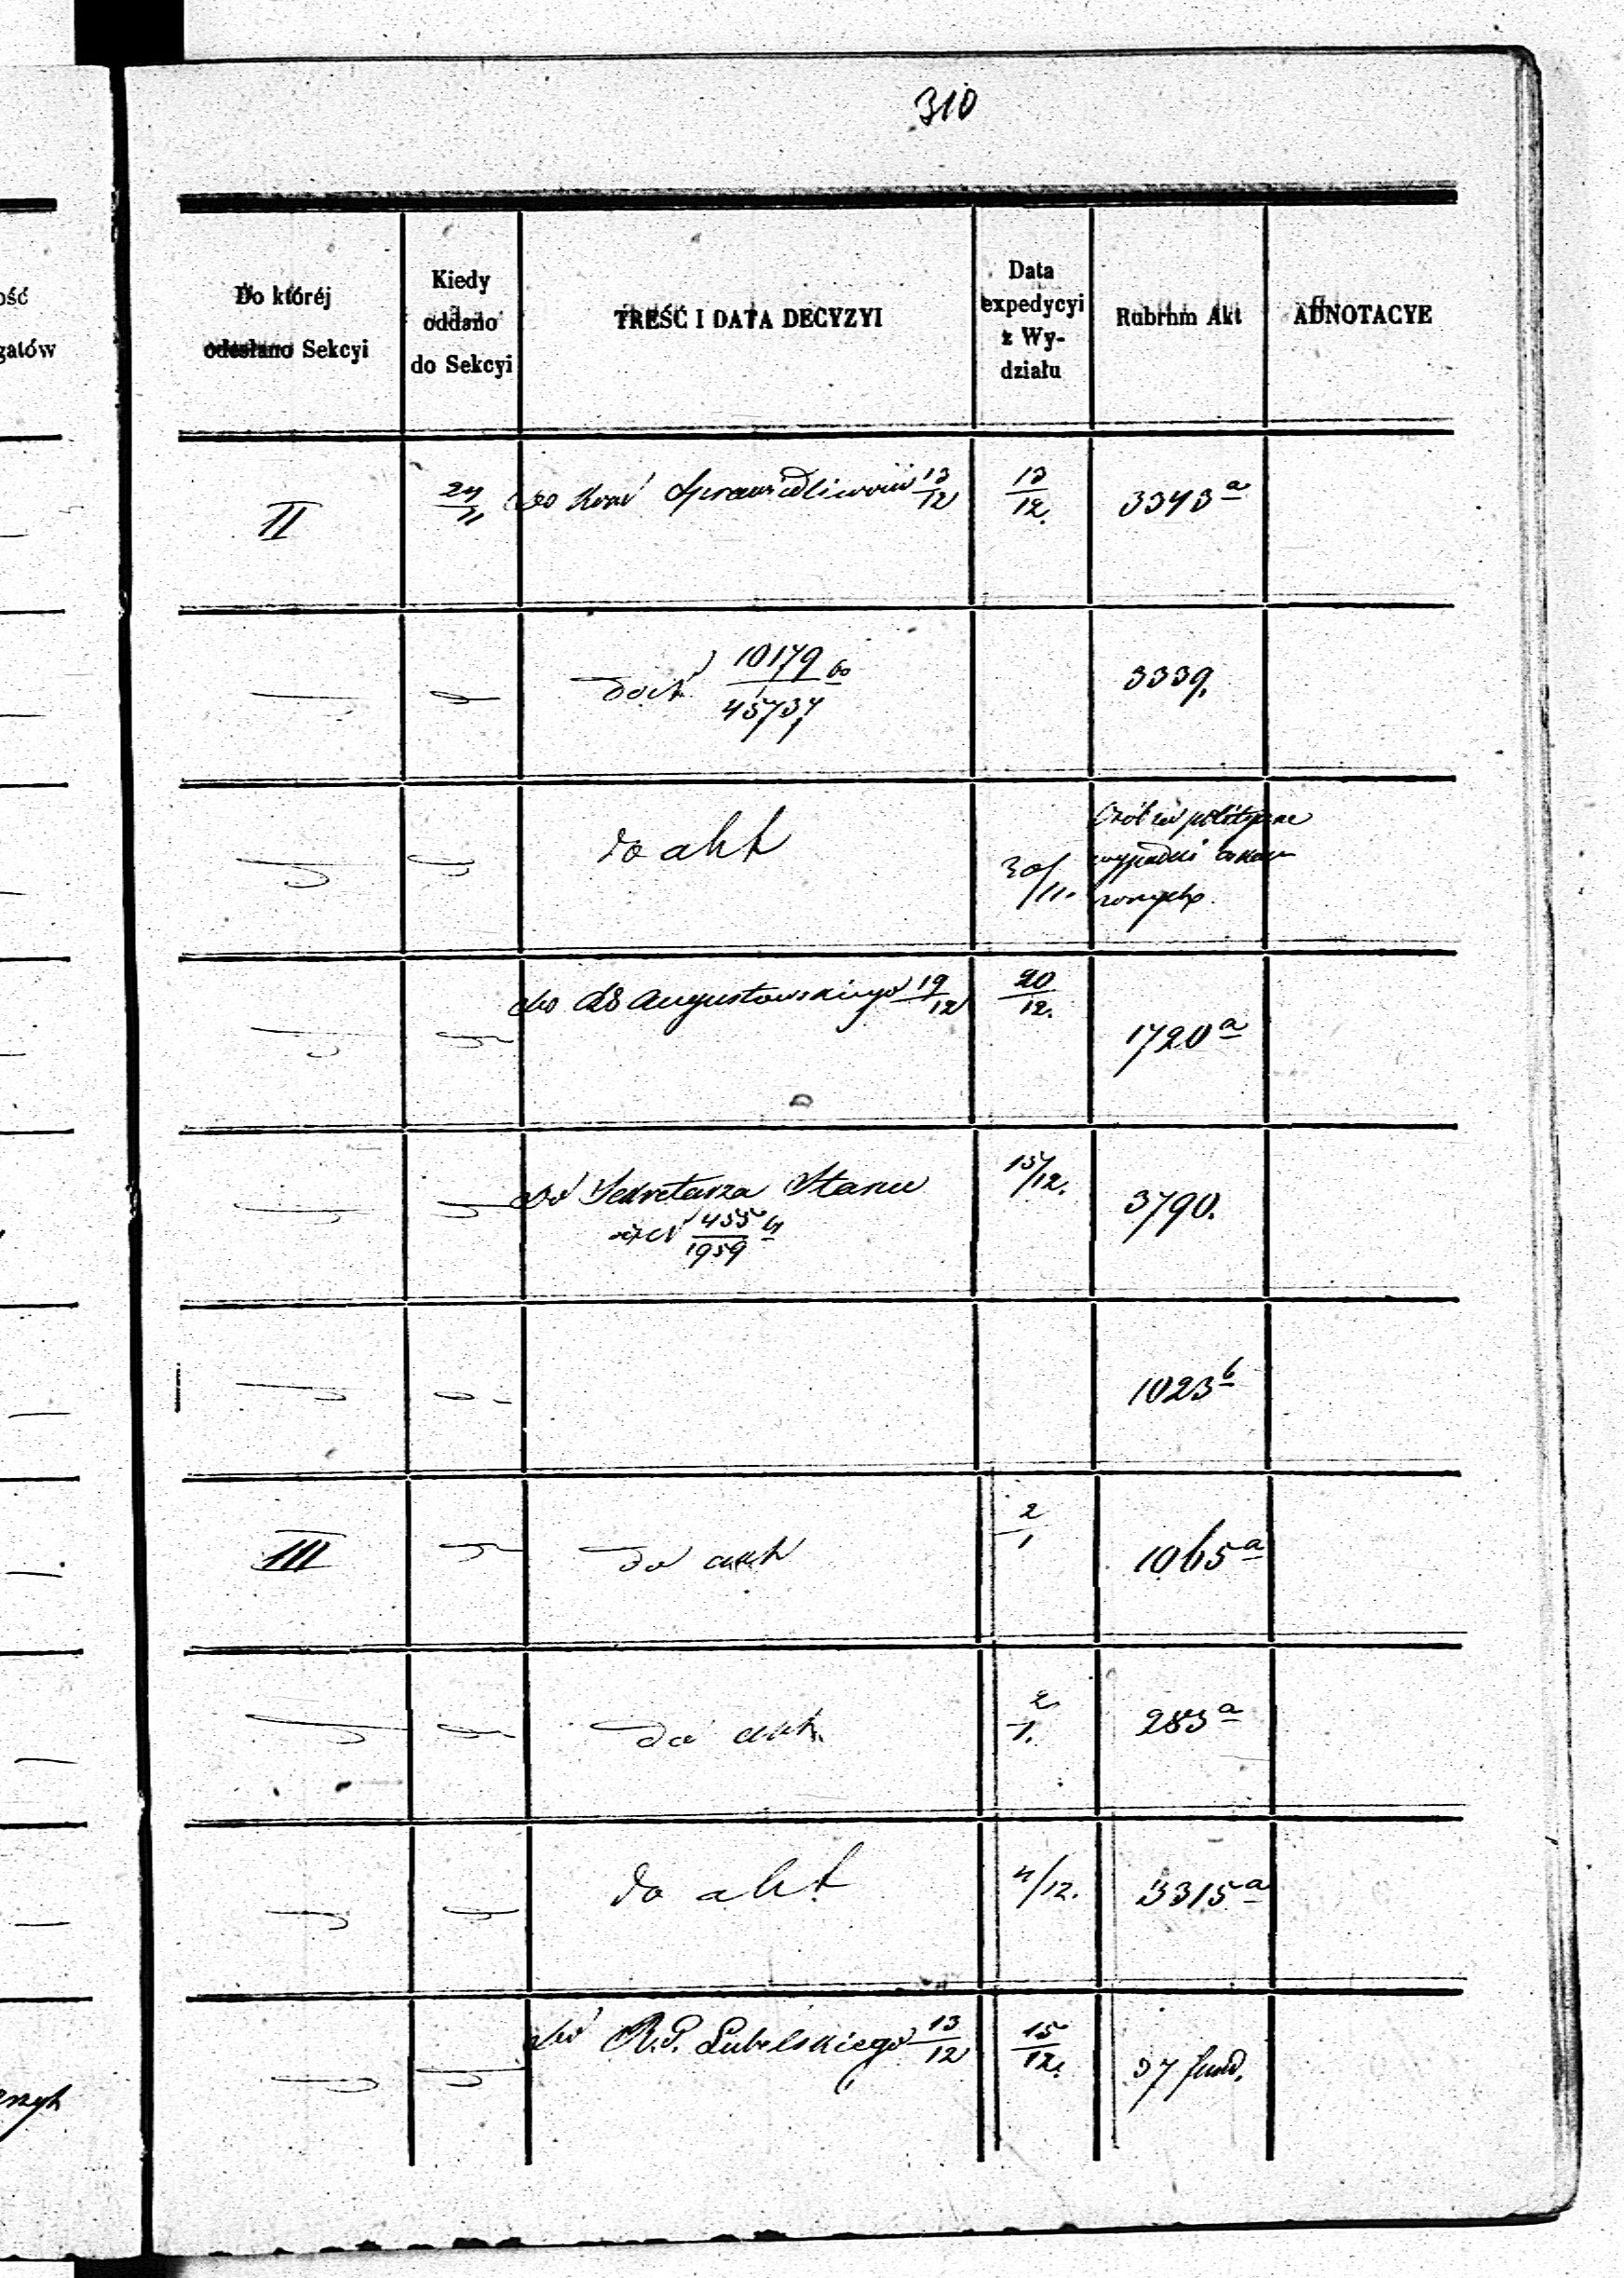 310
ość
gatów
Do któréj
odesłano Sekcyi
Kiedy
oddano
do Sekcyi
TREŚĆ I DATA DECYZYI
Data
expedycyi
z Wy-
działu
Rubrum Akt
ADNOTACYE
II
do Sprawiedliwości 13/12
13/12.
3343 a
10179
45737
3339.
do akt
30/11.
polityczne
wypadki
1720 a
do Augustowskiego 19/12
20/12.
Do Sekretarza Stanu
1959
15/12.
3790.
1023 b
III
do akt
2/1
1065 a
do akt.
2/1.
283 a
do akt
4/12.
3315 a
do R.P. Lubelskiego 13/12
15/12.
37 fund.